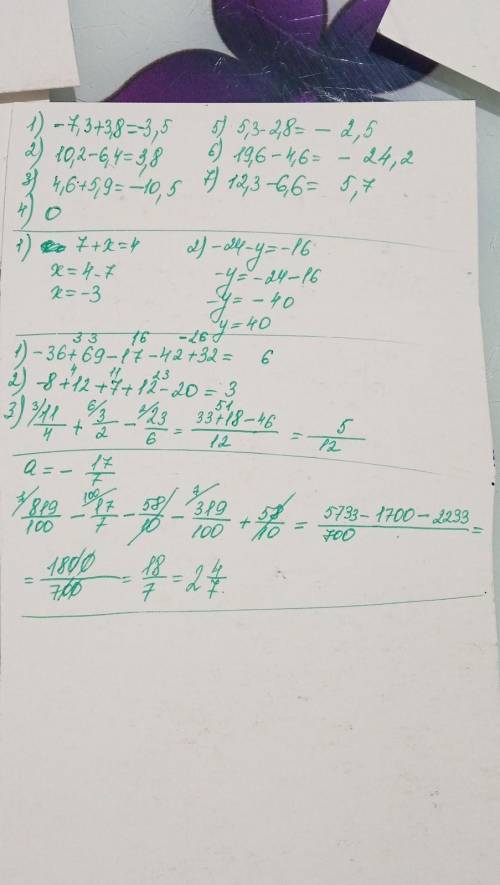 1) -7,3+3,8=-3,5 5) 5,3-2,8= - 2,5
2) 10,2-6,4=3,8 6) 19,6-4,6= - 24,2
3) 4,6+5,9=-10,5 7) 12,3-6,6= 5,7
4) 0
1) 7+x=4 2) -24-y=-16
x=4-7 -y=-24-16
x=-3 -y= -40
y=40
33 16 -26
1) -36+69-17-42+32= 6
4 11 23
2) -8+12+7+12-20 = 3
3) 3/11/4 + 6/3/2 - 2/23/6 = 33+18-46/12 = 5/12
51
a = - 17/7
7/819/100 - 100/17/7 - 58/10 - 7/319/100 + 58/10 = 5733-1700-2233/700 =
= 1800/700 = 18/7 = 2 4/7